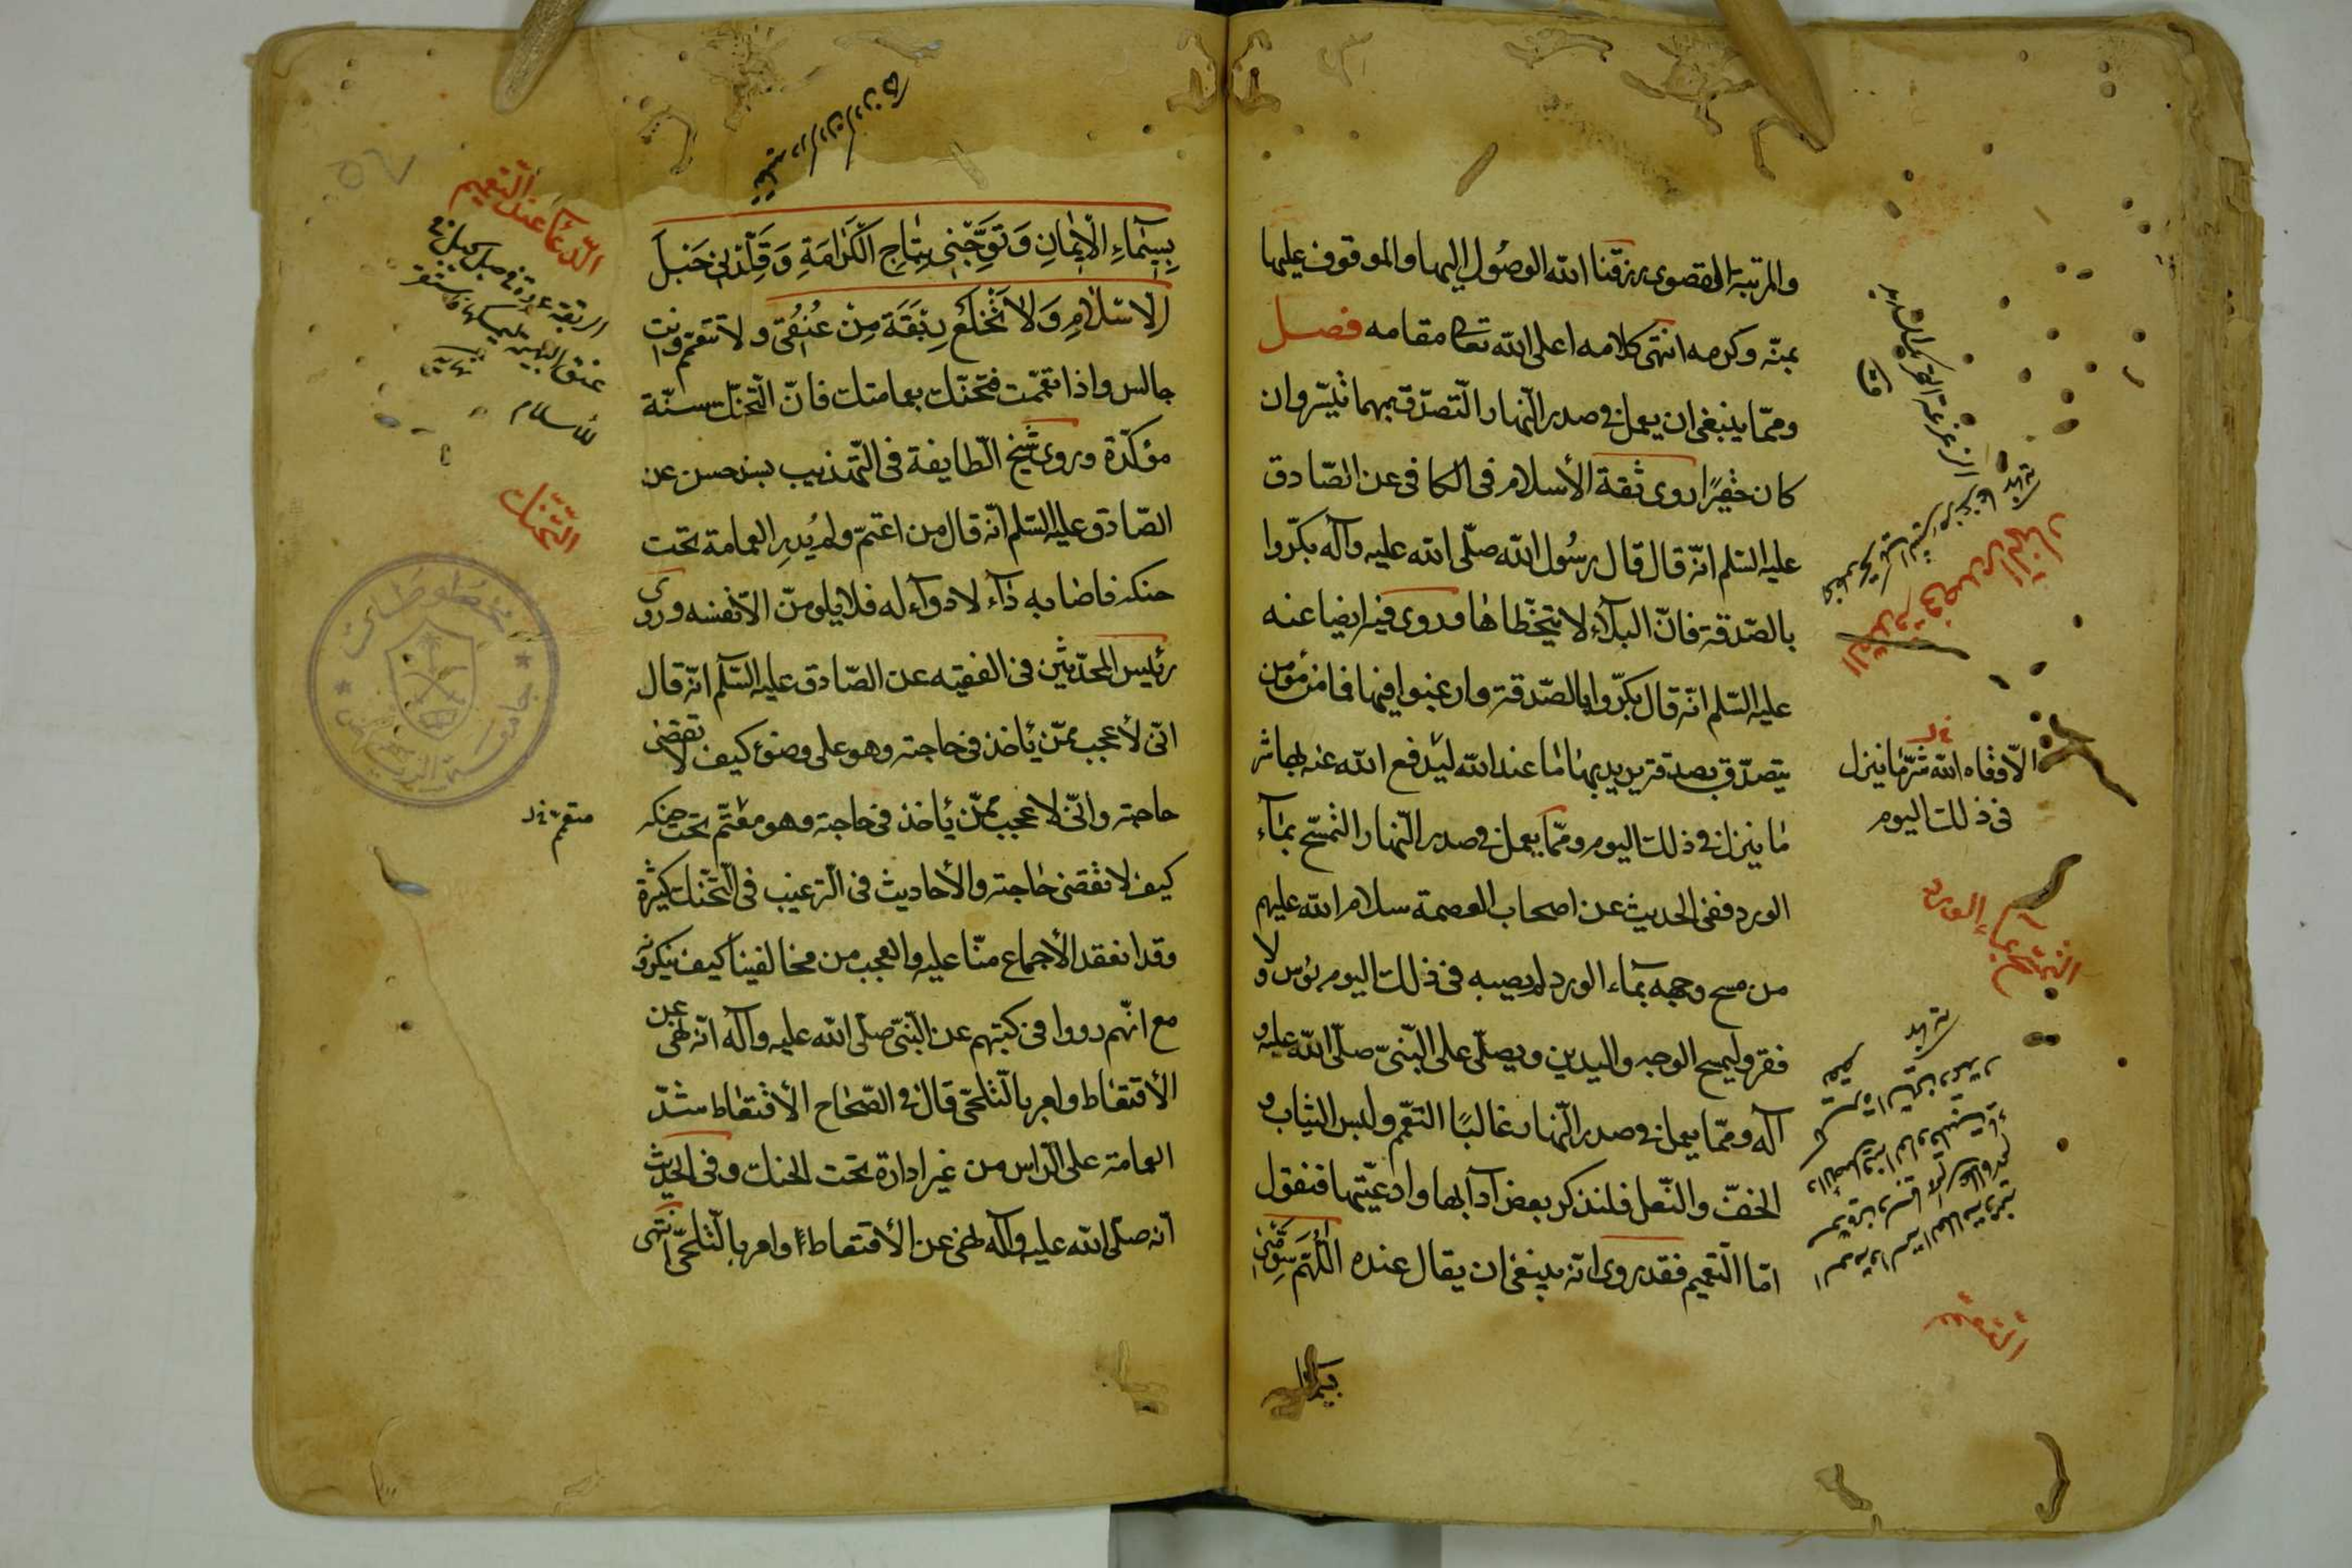 والمرتبة القصوى رزقنا الله الوصول اليها والموقوف عليها
بمنّه وكرمه انتهى كلامه اعلى الله تعالى مقامه فصل
وممّا ينبغى ان يعمل فى صدر النّهار التّصدّق بهما تيسّر وان
كان حقيرًا روى ثقة الأسلام فى الكافى عن الصّادق
عليه السّلم انّه قال قال رسُول الله صلّى الله عليه وآله بكّروا
بالصّدقة فانّ البلآء لا يتخطّاها وروى فيه ايضا عنه
عليه السّلم انّه قال بكّروا بالصّدقة وارغبوا فيها فما من مؤمن
يتصدّق بصدقة يريد بها ما عند الله ليدفع الله عنه بها شر
ما ينزل فى ذلك اليوم وممّا يعمل فى صدر النّهار التمسّح بمآء
الورد ففى الحديث عن اصحاب العصمة سلام الله عليهم
من مسح وجهه بمآء الورد لم يصبه فى ذلك اليوم بؤس ولا
فقر وليمسح الوجه واليدين ويصلّى على النّبىّ صلّى الله عليه و
آله وممّا يعمل فى صدر النّهار غالبًا التعمّم ولبس الثياب و
الخفّ والنّعل فلنذكر بعض آدابها وادعيتها فنقول
امّا التّعميم فقد روى انّه ينبغى ان يقال عنده اللّهمّ سوّمنى
بسيمآء
الّا وقاه الله شرّ ما ينزل
فى ذلك اليوم
التصدق فى صدر النهار
التمسّح بمآء الورد
بِسِيمَاءِ الْاِيْمانِ وَتَوِّجْنِى بِتَاجِ الْكَرَامَةِ وَقَلِّدْنِى حَبْلَ
الاسْلَامِ وَلَا تَخْلَعْ رِبْقَةَ مِنْ عُنُقِى ولا تتعمّم وانت
جالس واذا تعمّمت فتحنّك بعمامتك فانّ التّحنّك سنّة
مؤكّدة وروى شيخ الطّايفة فى التّهذيب بسند حسن عن
الصّادق عليه السّلم انّه قال من اعتمّ ولم يُدِرِ العمامة تحت
حنكه فاصابه دآء لا دوآء له فلا يلومنّ الّا نفسه وروى
رئيس المحدّثين فى الفقيه عن الصّادق عليه السّلم انّه قال
انّى لأعجب ممّن يأخذ فى حاجته وهو على وضوء كيف لا تقضى
حاجته وانّى لاعجب ممّن يأخذ فى حاجته وهو معتمّ تحت حنكه
كيف لا تقضى حاجته والأحاديث فى التّرغيب فى التّحنّك كثيرة
وقد انعقد الأجماع منّا عليه والعجب من مخالفينا كيف ينكرونه
مع انّهم رووا فى كتبهم عن النّبىّ صلّى الله عليه وآله انّه نهى عن
الأقتعاط وامر بالتّلحّى قال فى الصّحاح الأقتعاط شدّ
العمامة على الرّاس من غير ادارة تحت الحنك وفى الحديث
انّه صلّى الله عليه وآله نهى عن الأقتعاط وامر بالتّلحّى انتهى
الدّعآ عند التّعميم
للأسلام
التّحنّك